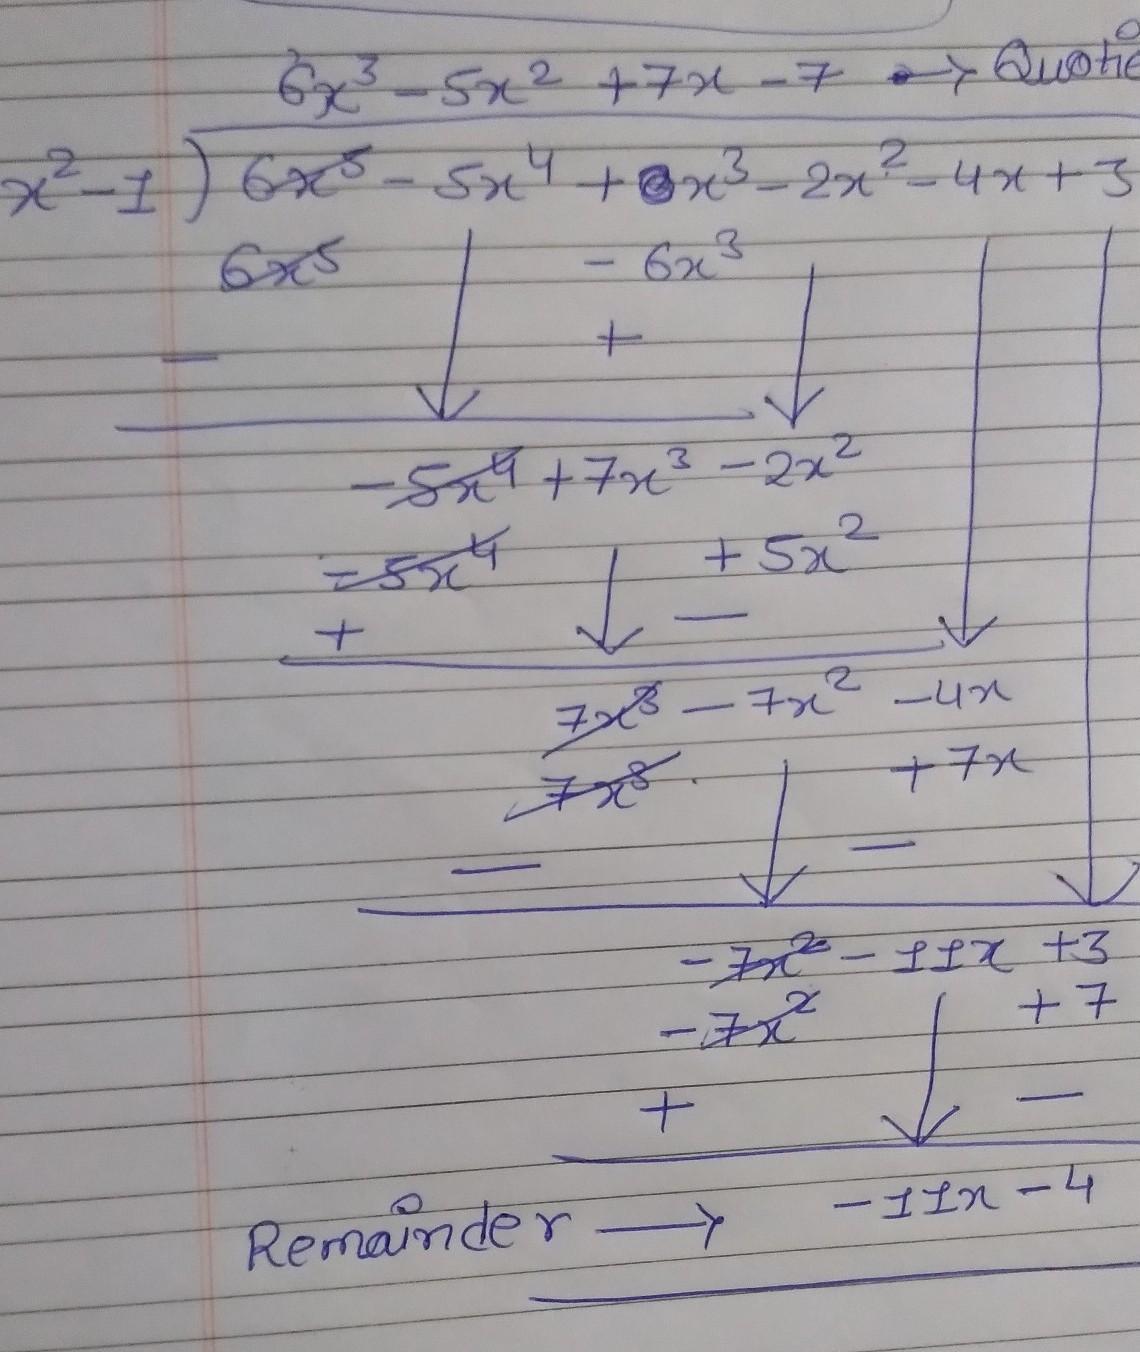 6x³ - 5x² + 7x - 7 → Quotie
x² - 1 ) 6x⁵ - 5x⁴ + x³ - 2x² - 4x + 3
6x⁵ - 6x³
- +
-5x⁴ + 7x³ - 2x²
-5x⁴ + 5x²
+ -
7x³ - 7x² - 4x
7x³ + 7x
- -
-7x² - 11x + 3
-7x² + 7
+ -
Remainder → -11x - 4